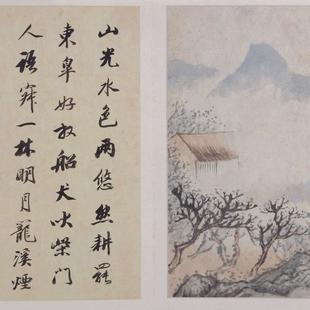 山光水色兩悠然耕罷
東皋好放船犬吠柴門
人語寂一林明月籠溪煙